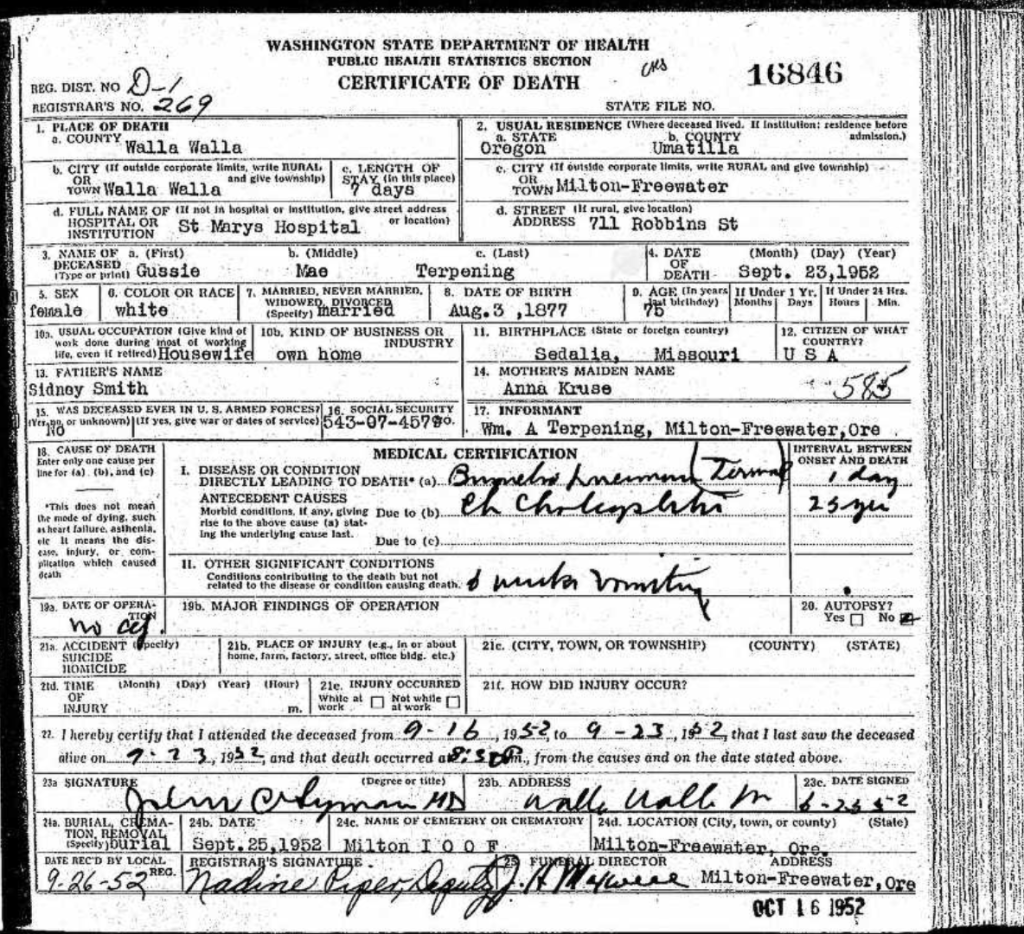 WASHINGTON STATE DEPARTMENT OF HEALTH
PUBLIC HEALTH STATISTICS SECTION
CERTIFICATE OF DEATH
16846
REG. DIST. NO D-1
REGISTRAR'S NO. 269
STATE FILE NO.
1. PLACE OF DEATH
a. COUNTY Walla Walla
2. USUAL RESIDENCE (Where deceased lived. If institution: residence before admission.)
a. STATE Oregon b. COUNTY Umatilla
b. CITY (If outside corporate limits, write RURAL and give township)
OR TOWN Walla Walla
c. LENGTH OF STAY (in this place) 7 days
c. CITY (If outside corporate limits, write RURAL and give township)
OR TOWN Milton-Freewater
d. FULL NAME OF (If not in hospital or institution, give street address or location)
HOSPITAL OR INSTITUTION St Marys Hospital
d. STREET (If rural, give location)
ADDRESS 711 Robbins St
3. NAME OF DECEASED (Type or print) a. (First) Gussie b. (Middle) Mae c. (Last) Terpening
4. DATE OF DEATH (Month) (Day) (Year) Sept. 23,1952
5. SEX female
6. COLOR OR RACE white
7. MARRIED, NEVER MARRIED, WIDOWED, DIVORCED (Specify) married
8. DATE OF BIRTH Aug.3 ,1877
9. AGE (In years last birthday) 75
If Under 1 Yr. Months Days
If Under 24 Hrs. Hours Min.
10a. USUAL OCCUPATION (Give kind of work done during most of working life, even if retired) Housewife
10b. KIND OF BUSINESS OR INDUSTRY own home
11. BIRTHPLACE (State or foreign country) Sedalia, Missouri
12. CITIZEN OF WHAT COUNTRY? U S A
13. FATHER'S NAME
Sidney Smith
14. MOTHER'S MAIDEN NAME
Anna Kruse
585
15. WAS DECEASED EVER IN U. S. ARMED FORCES? (Yes, no, or unknown) (If yes, give war or dates of service) No
16. SOCIAL SECURITY NO. 543-07-4579
17. INFORMANT
Wm. A Terpening, Milton-Freewater,Ore
18. CAUSE OF DEATH
Enter only one cause per line for (a), (b), and (c)
*This does not mean the mode of dying, such as heart failure, asthenia, etc It means the disease, injury, or complication which caused death
MEDICAL CERTIFICATION
INTERVAL BETWEEN ONSET AND DEATH
I. DISEASE OR CONDITION
DIRECTLY LEADING TO DEATH* (a) 1 day
ANTECEDENT CAUSES
Morbid conditions, if any, giving rise to the above cause (a) stating the underlying cause last.
Due to (b) Ch 25 yrs
Due to (c)
II. OTHER SIGNIFICANT CONDITIONS
Conditions contributing to the death but not related to the disease or condition causing death. vomiting
19a. DATE OF OPERATION no
19b. MAJOR FINDINGS OF OPERATION
20. AUTOPSY?
Yes No
21a. ACCIDENT (Specify) SUICIDE HOMICIDE
21b. PLACE OF INJURY (e.g., in or about home, farm, factory, street, office bldg. etc.)
21c. (CITY, TOWN, OR TOWNSHIP) (COUNTY) (STATE)
21d. TIME OF INJURY (Month) (Day) (Year) (Hour) m.
21e. INJURY OCCURRED
While at work Not while at work
21f. HOW DID INJURY OCCUR?
22. I hereby certify that I attended the deceased from 9-16, 1952, to 9-23, 1952, that I last saw the deceased
alive on 9-23, 1952, and that death occurred at m., from the causes and on the date stated above.
23a SIGNATURE (Degree or title) Lyman MD
23b. ADDRESS Walla Walla
23c. DATE SIGNED
24a. BURIAL, CREMATION, REMOVAL (Specify) burial
24b. DATE Sept.25,1952
24c. NAME OF CEMETERY OR CREMATORY Milton I O O F
24d. LOCATION (City, town, or county) (State) Milton-Freewater, Ore.
DATE REC'D BY LOCAL REG. 9-26-52
REGISTRAR'S SIGNATURE Nadine Piper, Deputy
25 FUNERAL DIRECTOR ADDRESS Milton-Freewater,Ore
OCT 16 1952